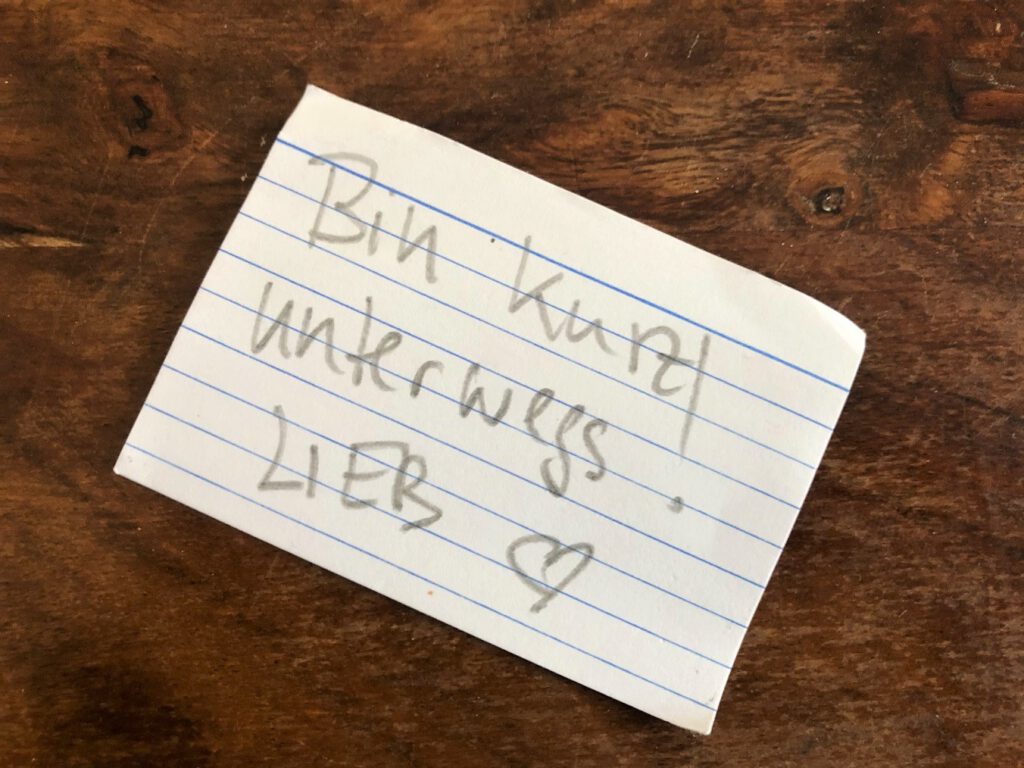 Bin kurz
unterwegs!
LIEB ♡